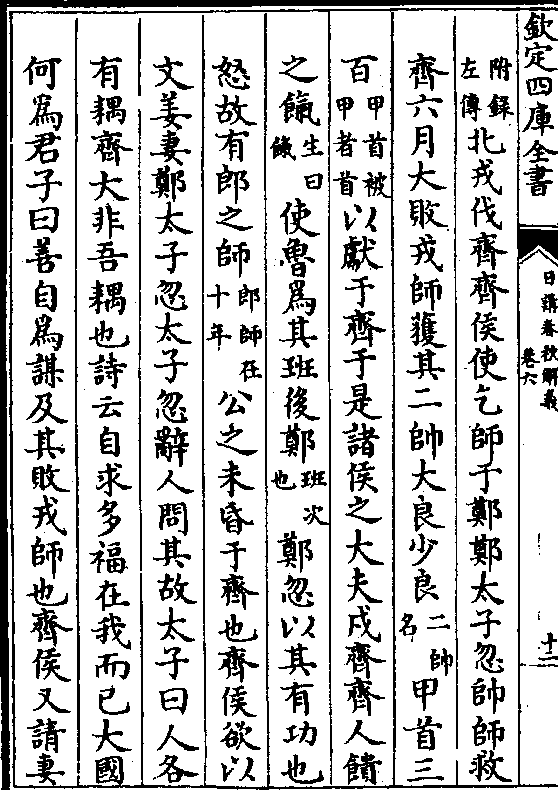 欽定四庫全書
日講春秋解義
卷六
十二
附錄左傳北戎伐齊齊侯使乞師于鄭鄭太子忽帥師救
齊六月大敗戎師獲其二帥大良少良二帥名甲首三
百甲首被甲者首以獻于齊于是諸侯之大夫戍齊齊人饋
之餼生曰餼使魯為其班後鄭班次也鄭忽以其有功也
怒故有郎之師郎師在十年公之未昏于齊也齊侯欲以
文姜妻鄭太子忽太子忽辭人問其故太子曰人各
有耦齊大非吾耦也詩云自求多福在我而已大國
何為君子曰善自為謀及其敗戎師也齊侯又請妻